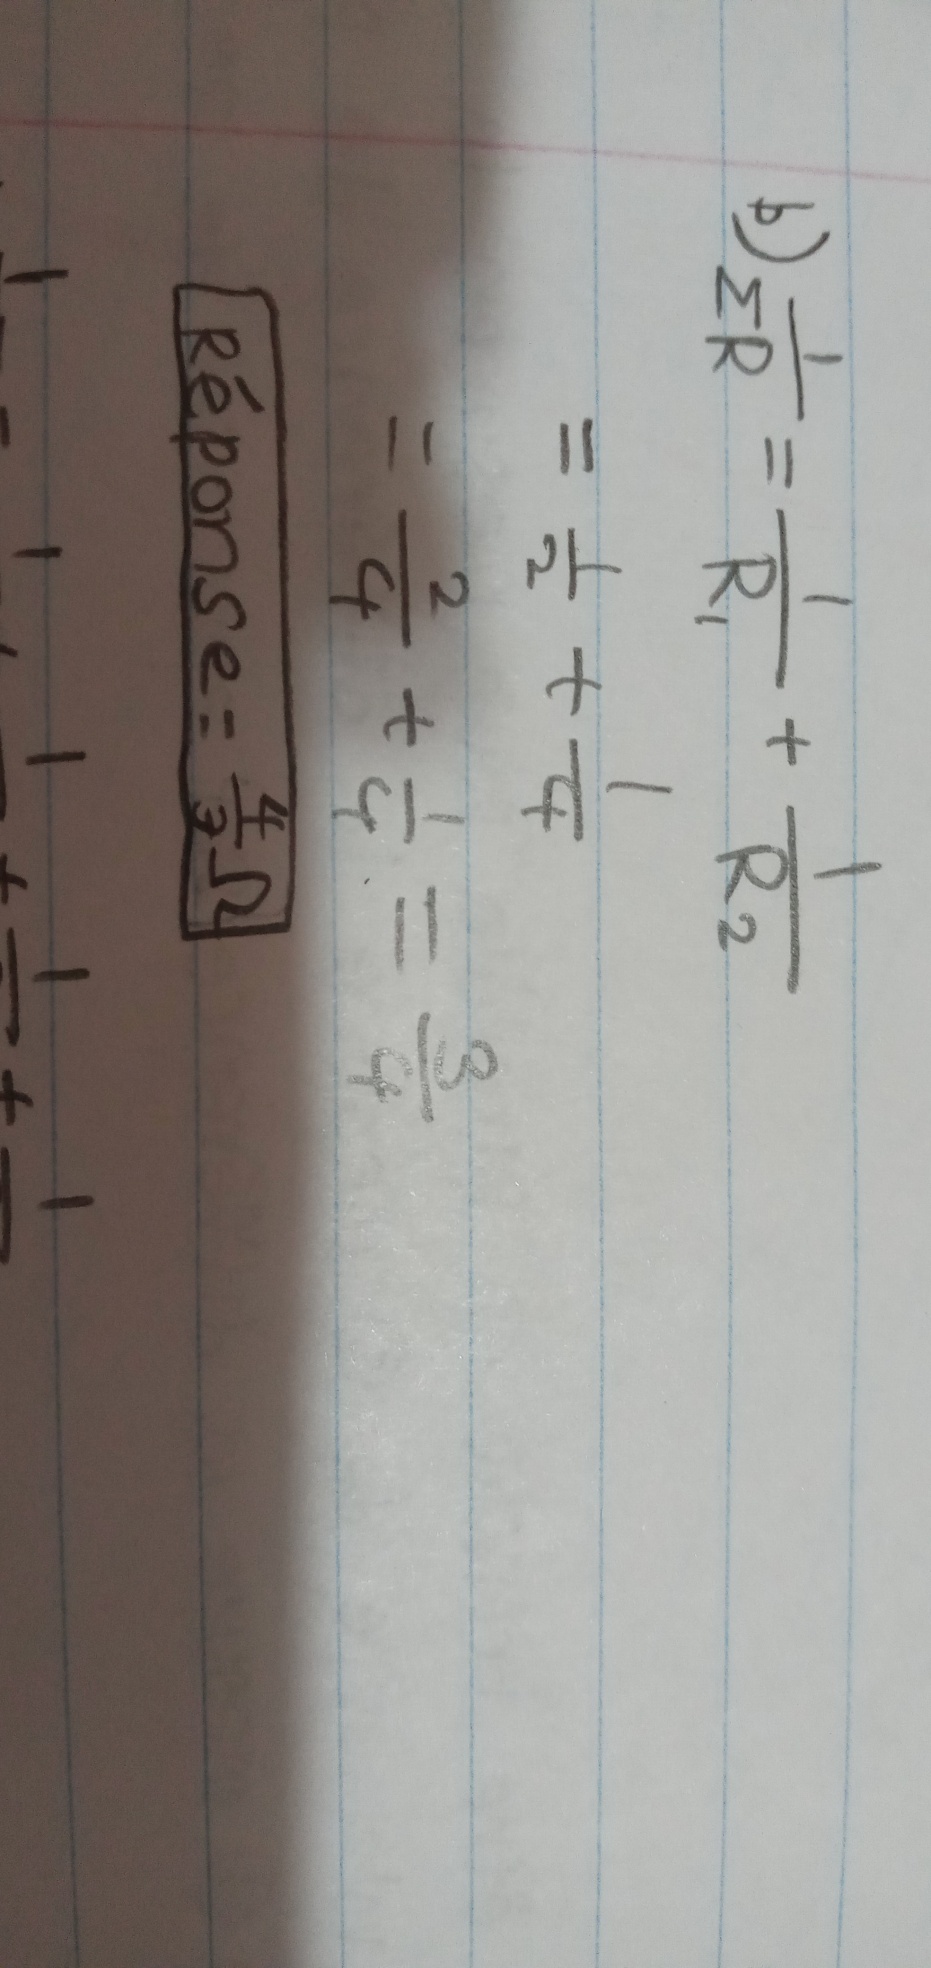 b) 1/ΣR = 1/R₁ + 1/R₂
= 1/2 + 1/4
= 2/4 + 1/4 = 3/4
Réponse = 4/3 Ω